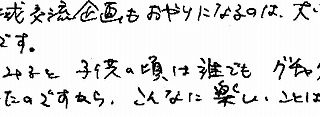 域交流企画もおやりになるのは、大
です。
みると子供の頃は誰でもグチャグ
たのですから、こんなに楽しいことは